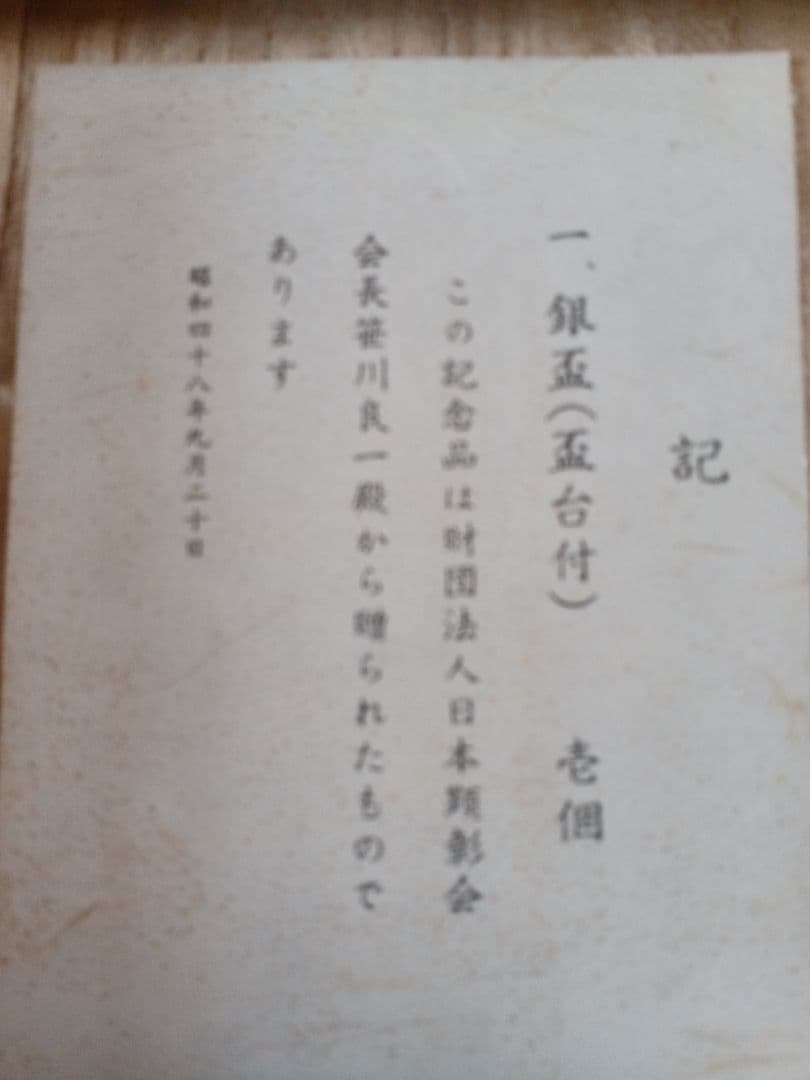 記
一、銀盃(盃台付) 壱個
この記念品は財団法人日本顕彰会
会長笹川良一殿から贈られたもので
あります
昭和四十八年九月二十日